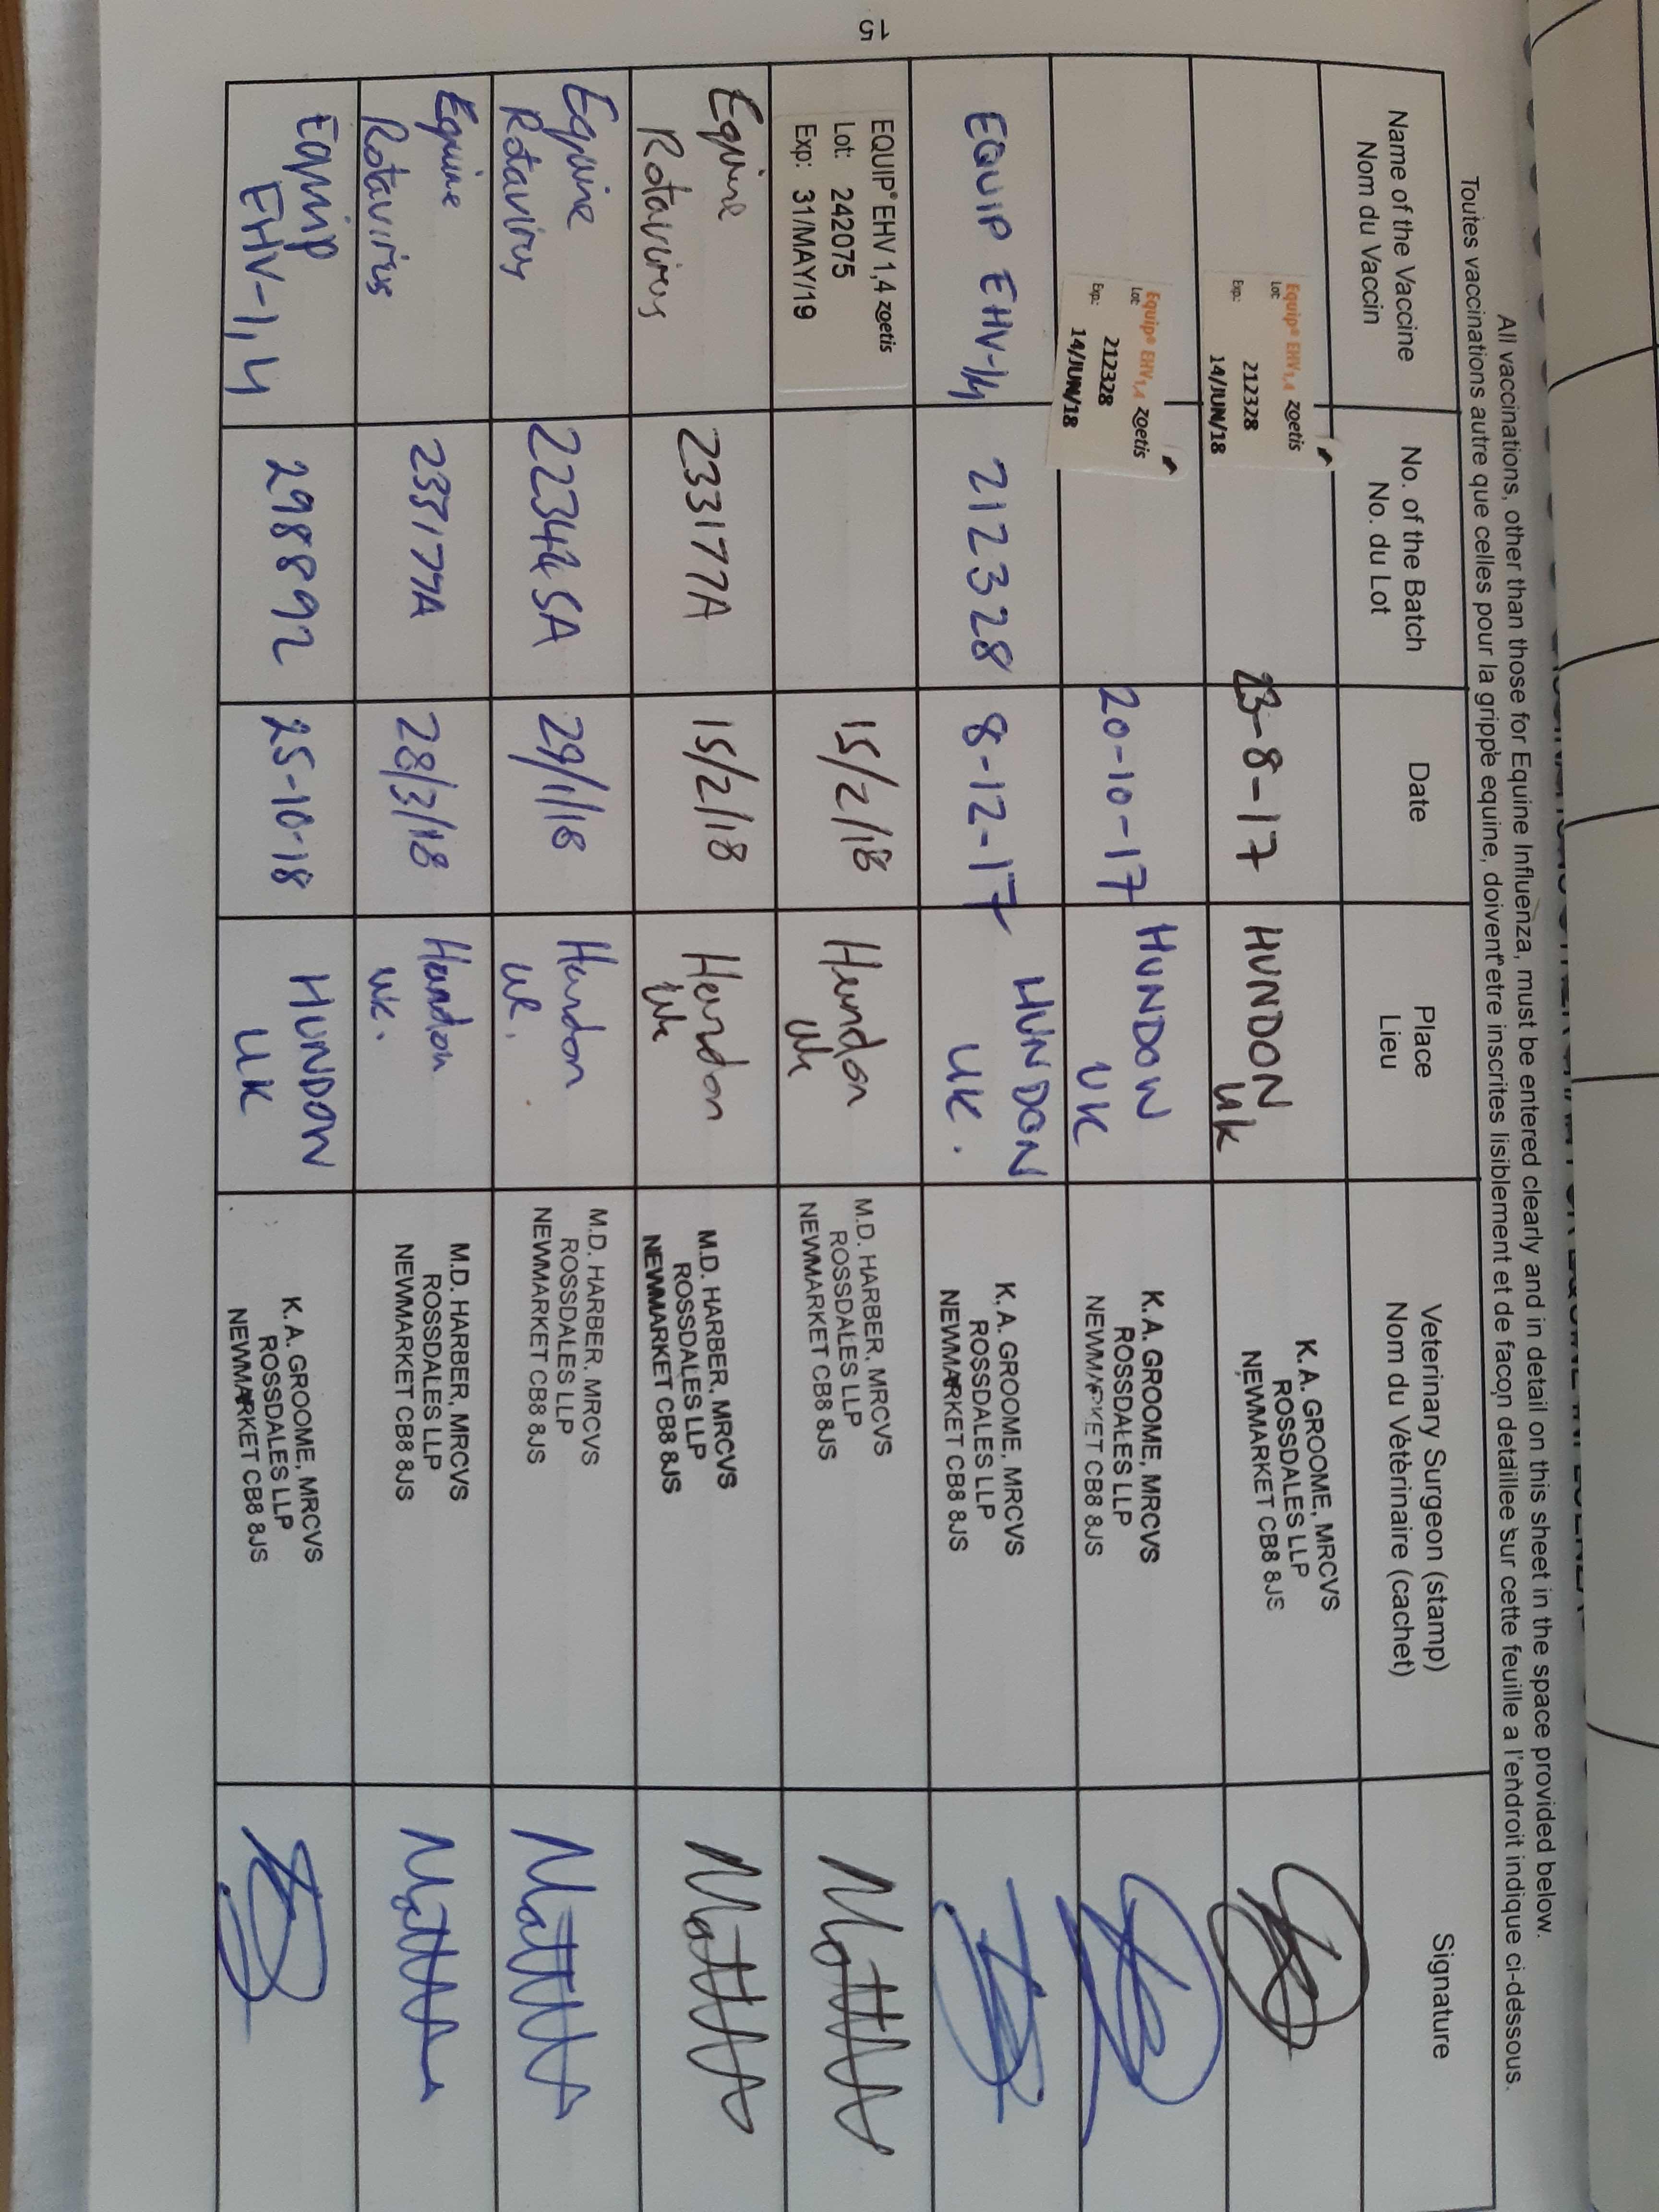 All vaccinations, other than those for Equine Influenza, must be entered clearly and in detail on this sheet in the space provided below.
Toutes vaccinations autre que celles pour la grippe equine, doivent etre inscrites lisiblement et de facon detaillee sur cette feuille a l'endroit indique ci-dessous.
Name of the Vaccine
Nom du Vaccin
No. of the Batch
No. du Lot
Date
Place
Lieu
Veterinary Surgeon (stamp)
Nom du Vétérinaire (cachet)
Signature
Equip® EHV1,4 zoetis
Lot: 212328
Exp.: 14/JUN/18
23-8-17
HUNDON
UK
K.A. GROOME, MRCVS
ROSSDALES LLP
NEWMARKET CB8 8JS
Equip® EHV1,4 zoetis
Lot: 212328
Exp.: 14/JUN/18
20-10-17
HUNDON
UK
K.A. GROOME, MRCVS
ROSSDALES LLP
NEWMARKET CB8 8JS
EQUIP EHV-1,4
212328
8-12-17
HUNDON
UK.
K.A. GROOME, MRCVS
ROSSDALES LLP
NEWMARKET CB8 8JS
EQUIP® EHV 1,4 zoetis
Lot: 242075
Exp: 31/MAY/19
15/2/18
Hundon
Uk
M.D. HARBER, MRCVS
ROSSDALES LLP
NEWMARKET CB8 8JS
Equine
Rotavirus
233177A
15/2/18
Hundon
Uk
M.D. HARBER, MRCVS
ROSSDALES LLP
NEWMARKET CB8 8JS
Equine
Rotavirus
29/1/18
Hundon
UK.
M.D. HARBER, MRCVS
ROSSDALES LLP
NEWMARKET CB8 8JS
Equine
Rotavirus
233177A
28/3/18
Hundon
UK.
M.D. HARBER, MRCVS
ROSSDALES LLP
NEWMARKET CB8 8JS
Equip
EHV-1,4
298892
25-10-18
HUNDON
UK
K.A. GROOME, MRCVS
ROSSDALES LLP
NEWMARKET CB8 8JS
15